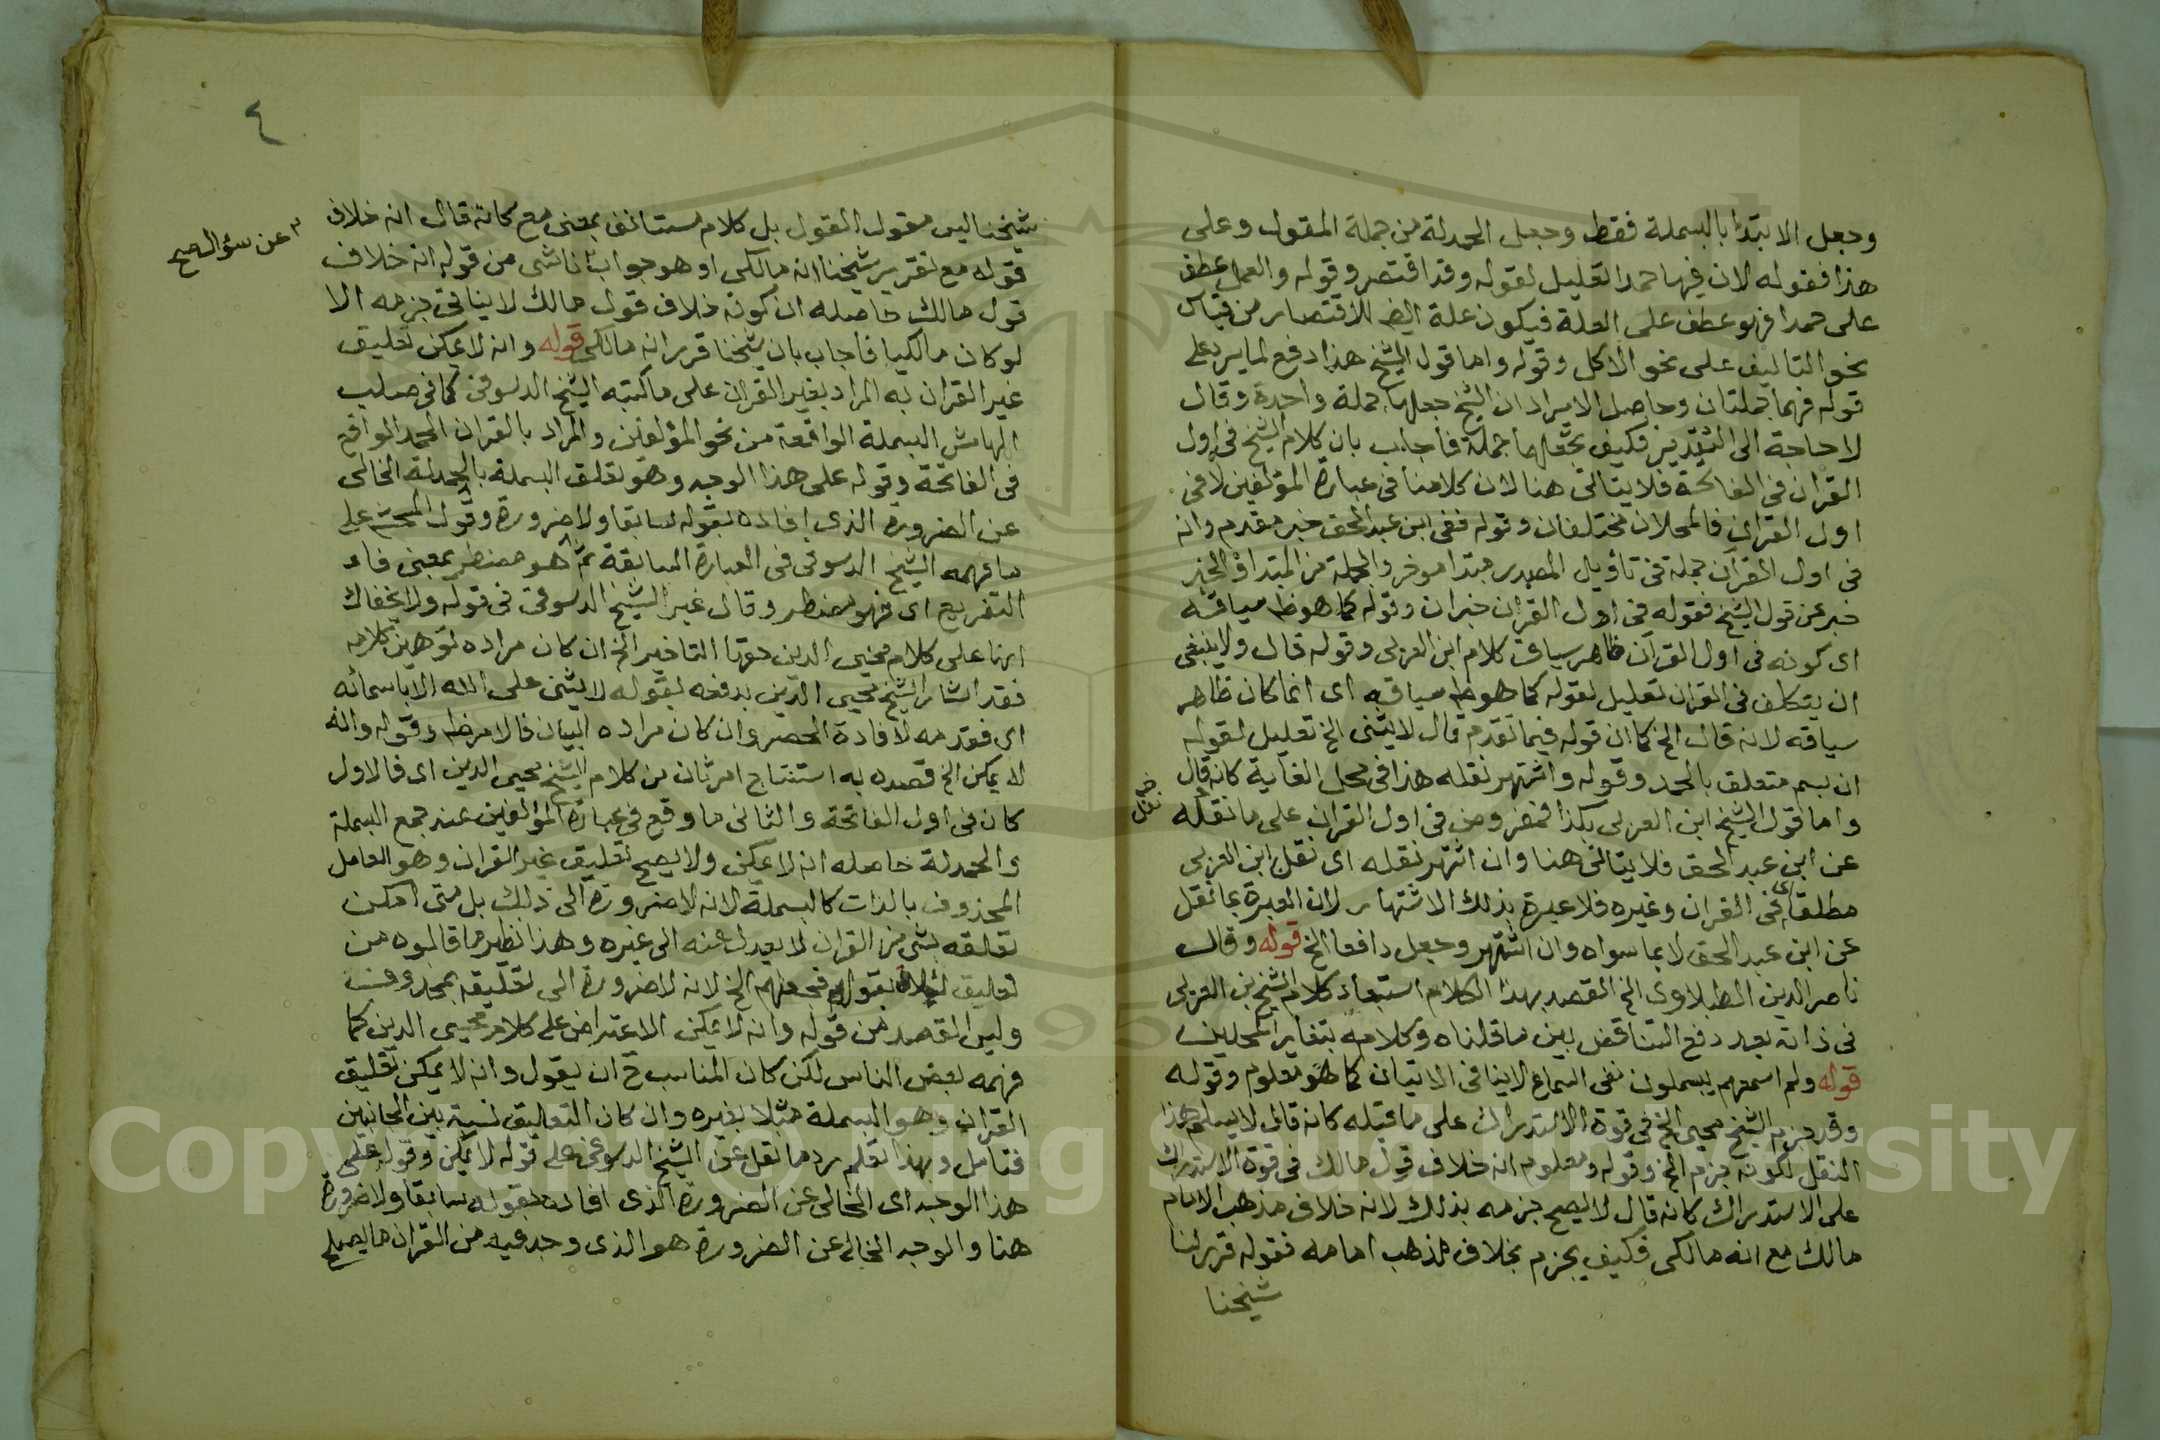 وجعل الابتدا بالبسملة فقط وجعل الحمدلة من جملة المقول وعلى
هذا فقوله لان فيها حمدا تعليل لقوله وقد اقتصر وقوله والعمل عطف
على حمدا فهو عطف على العلة فيكون علة ايضا للاقتصار من قياس
نحو التاليف على نحو الاكل وقوله واما قول الشيخ هذا دفع لما يرد على
قوله فهما جملتان وحاصل الايراد ان الشيخ جعلها جملة واحدة وقال
لا حاجة الى التقدير فكيف تجعلهما جملة فاجاب بان كلام الشيخ في اول
القران في الفاتحة فلا يتاتى هنا لان كلامنا في عبارة المؤلفين لا في
اول القران فالمحلان مختلفان وقوله ففي ابن عبد الحق خبر مقدم وانه
في اول القرآن جملة في تأويل المصدر مبتدا موخر والجملة من المبتدا والخبر
خبر عن قول الشيخ فقوله في اول القران خبران وقوله كما هو ظ سياقه
اى كونه في اول القرآن ظاهر سياق كلام ابن العربى وقوله قال ولا ينبغى
ان يتكلف في القران تعليل لقوله كما هو ظ سياقه اى انما كان ظاهر
سياقه لانه قال الخ كما ان قوله فيما تقدم قال لا يثنى الخ تعليل لقوله
ان بسم متعلق بالحمد وقوله واشتهر نقله هذا في محل الغاية كانه قال
واما قول الشيخ ابن العربى بكذا فمفروض في اول القران على ما نقله
عن ابن عبد الحق فلا يتاتى هنا وان اشتهر نقله اى نقل ابن العربى
مطلقا اى في القران وغيره فلا عبرة بذلك الاشتهار لان العبرة بما نقل
عن ابن عبد الحق لا بما سواه وان اشتهر وجعل دافعا الخ قوله وقال
ناصر الدين الطبلاوى الخ القصد بهذا الكلام استبعاد كلام الشيخ بن العربى
في ذاته بعد دفع التناقض بين ما قلناه وكلامه بتغاير المحلين
قوله ولم اسمعهم يبسملون نفى السماع لا ينافى الاتيان كما هو معلوم وقوله
وقد جزم الشيخ محيى الخ في قوة الاستدراك على ما قبله كانه قال لا يسلم هذا
النقل لكونه جزم الخ وقوله ومعلوم انه خلاف قول مالك في قوة الاستدراك
على الاستدراك كانه قال لا يصح جزمه بذلك لانه خلاف مذهب الامام
مالك مع انه مالكى فكيف يجزم بخلاف مذهب امامه فقوله قرر لنا
شيخنا
٤
شيخنا ليس مقول القول بل كلام مستانف بمعنى مع كانه قال انه خلاف
قوله مع تقرير شيخنا انه مالكى او هو جواب ناشى من قوله انه خلاف
عن سؤال صح
قول مالك حاصله ان كونه خلاف قول مالك لا ينافى جزمه الا
لو كان مالكيا فاجاب بان شيخنا قرر انه مالكى قوله وانه لا يمكن تعليق
غير القران به المراد بغير القران على ما كتبه الشيخ الدسوقى كما في صلب
الهامش البسملة الواقعة من نحو المؤلفين والمراد بالقران الحمد الواقع
في الفاتحة وقوله على هذا الوجه وهو تعلق البسملة بالحمدلة الخالى
عن الضرورة الذى افاده بقوله سابقا ولا ضرورة وقول المحشى على
ما فهمه الشيخ الدسوقى في العبارة السابقة ثم هو مضطر بمعنى فاء
التفريع اى فهو مضطر وقال غير الشيخ الدسوقى في قوله ولا يخفاك
انه على كلام محيى الدين حقها التاخير الخ ان كان مراده توهين كلامه
فقد اشار الشيخ محيى الدين بدفعه بقوله لا يثنى على الله الا باسمائه
اى فقدمه لافادة الحصر وان كان مراده البيان فالامر ظ وقوله وانه
لا يمكن الخ قصده به استنتاج امر ثان من كلام الشيخ محيى الدين اى فالاول
كان في اول الفاتحة والثانى ما وقع في عبارة المؤلفين عند جمع البسملة
والحمدلة حاصله انه لا يمكن ولا يصح تعليق غير القران وهو العامل
المحذوف بالذات كالبسملة لانه لا ضرورة الى ذلك بل متى امكن
تعلقه بشى من القران لا يعدل عنه الى غيره وهذا نظير ما قالوه من
تعليق لئلاف بقوله فجعلهم الخ لانه لا ضرورة الى تعليقه بمحذوف
وليس المقصد من قوله وانه لا يمكن الاعتراض على كلام محيى الدين كما
فهمه بعض الناس لكن كان المناسب ح ان يقول وانه لا يمكن تعليق
القران وهو البسملة مثلا بغيره وان كان التعليق نسبة بين الجانبين
فتامل وبهذا تعلم رد ما نقل عن الشيخ الدسوقى على قوله لا يمكن وقوله على
هذا الوجه اى الخالى عن الضرورة الذى افاده بقوله سابقا ولا ضرورة
هنا والوجه الخالى عن الضرورة هو الذى وجد فيه من القران ما يصلح
Copyright © King Saud University